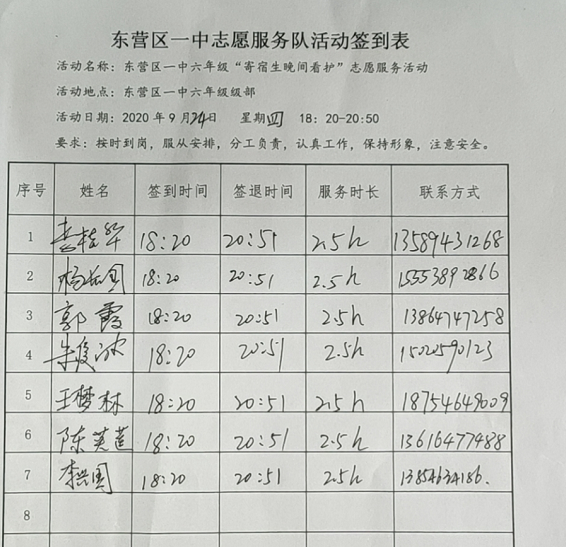 东营区一中志愿服务队活动签到表
活动名称：东营区一中六年级“寄宿生晚间看护”志愿服务活动
活动地点：东营区一中六年级级部
活动日期：2020 年 9 月 24 日 星期四 18：20-20:50
要求：按时到岗，服从安排，分工负责，认真工作，保持形象，注意安全。
序号 姓名 签到时间 签退时间 服务时长 联系方式
1 18:20 20:51 2.5h 13589431268
2 18:20 20:51 2.5h 15553892866
3 郭霞 18:20 20:51 2.5h 13864747258
4 18:20 20:51 2.5h 15020590123
5 王梦林 18:20 20:51 2.5h 18754649009
6 陈芙莲 18:20 20:51 2.5h 13616477488
7 李兴国 18:20 20:51 2.5h 13854634186.
8